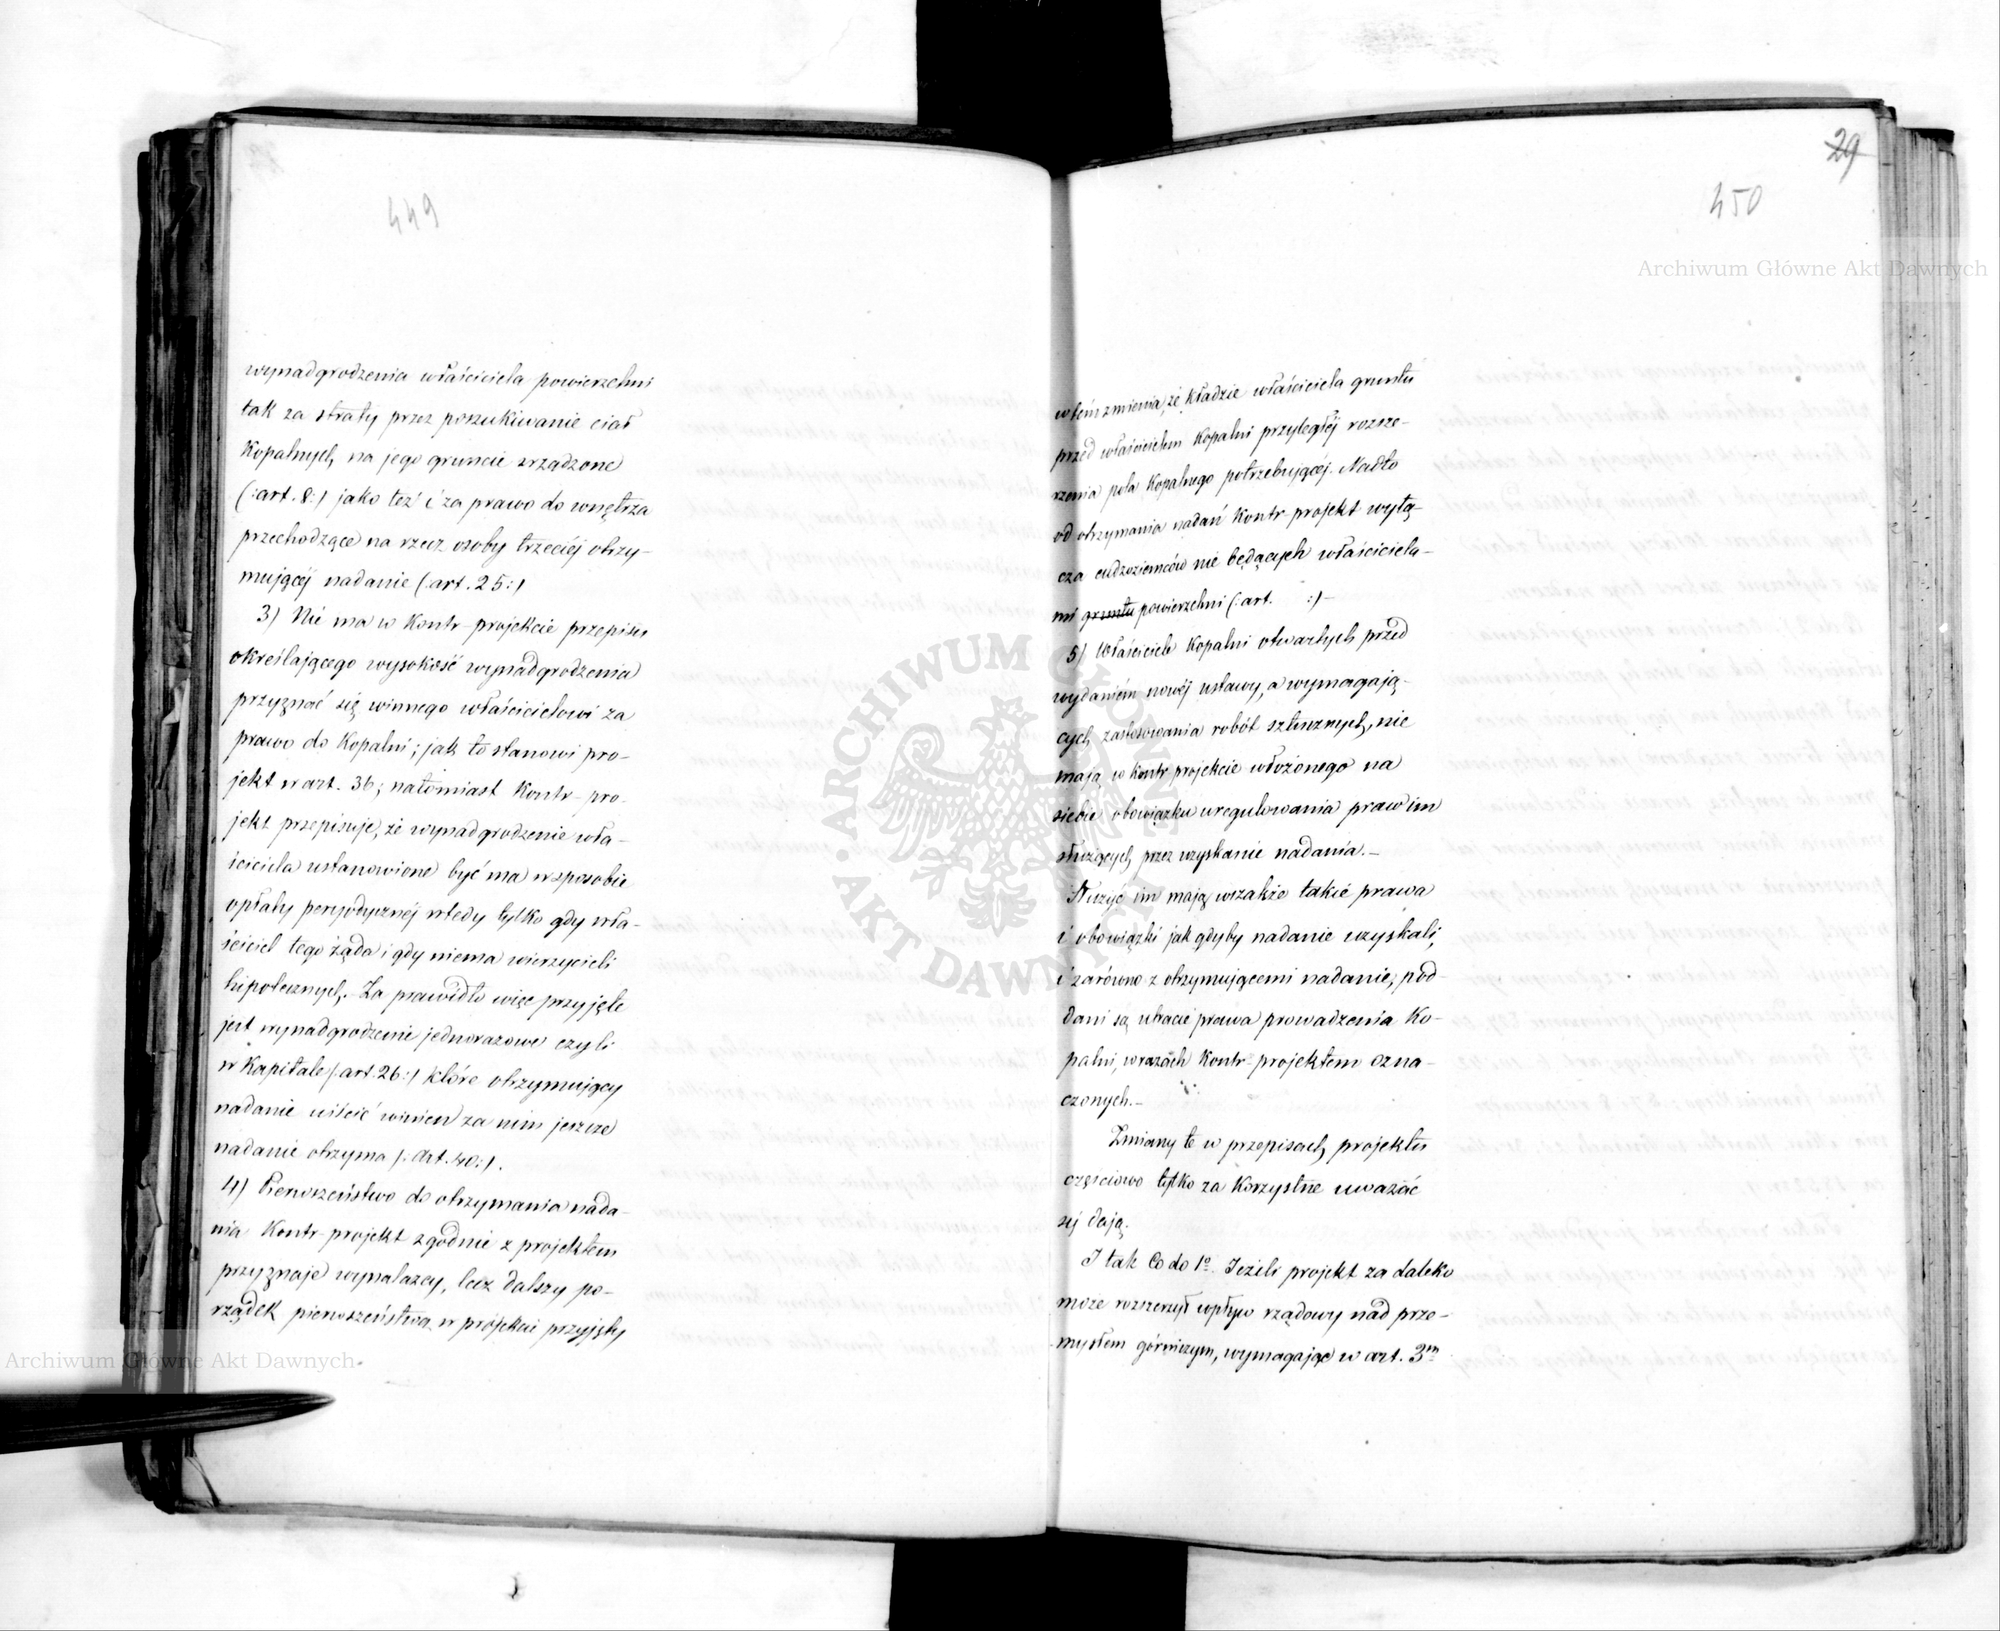 449
wynadgrodzenia właściciela powierzchni
tak za straty przez poszukiwanie ciał
Kopalnych, na jego gruncie zrządzone
(:art. 8:) jako też i za prawo do wnętrza
przechodzące na rzecz osoby trzeciéj otrzy-
mującéj nadanie (:art. 25:)
3) Nie ma w Kontr-projekcie przepisu
określającego wysokość wynadgrodzenia
przyznać się winnego właścicielowi za
prawo do Kopalni; jak to stanowi pro-
jekt w art. 36; natomiast Kontr-pro-
jekt przepisuje, że wynadgrodzenie wła-
ściciela ustanowione być ma w sposobie
opłaty peryodycznéj wtedy tylko gdy wła-
ściciel tego żąda i gdy niema wierzycieli
hipotecznych. Za prawidło więc przyjęte
jest wynadgrodzenie jednorazowe czyli
w Kapitale (:art. 26:) które otrzymujący
nadanie uiścić winien za nim jeszcze
nadanie otrzyma (:art. 40:).
4) Pierwszeństwo do otrzymania nada-
nia Kontr-projekt zgodnie z projektem
przyznaje wynalazcy, lecz dalszy po-
rządek pierwszeństwa w projekcie przyjęty
29
450
Archiwum Główne Akt Dawnych
w tém zmienia, że kładzie właściciela gruntu
przed właścicielem Kopalni przyległéj rozsze-
rzenia pola Kopalnego potrzebującéj. Nadto
od otrzymania nadań Kontr-projekt wyłą-
cza cudzoziemców nie będących właściciela-
mi gruntu powierzchni (:art. :)-
5) Właściciele Kopalni otwartych przed
wydaniem nowéj ustawy, a wymagają-
cych zastosowania robót sztucznych, nie
mają w Kontr projekcie włożonego na
siebie obowiązku uregulowania praw im
służących przez uzyskanie nadania.-
Służyć im mają wszakże takie prawa
i obowiązki jak gdyby nadanie uzyskali,
i zarówno z otrzymującemi nadanie, pod-
dani są utracie prawa prowadzenia Ko-
palni, w razach Kontr-projektem ozna-
czonych.-
Zmiany te w przepisach projektu
częściowo tylko za Korzystne uważać
się dają.
I tak Co do 1o. Jeżeli projekt za daleko
może rozszerzył wpływ rządowy nad prze-
mysłem górniczym, wymagając w art. 3m
ARCHIWUM GŁÓWNE AKT DAWNYCH
Archiwum Główne Akt Dawnych